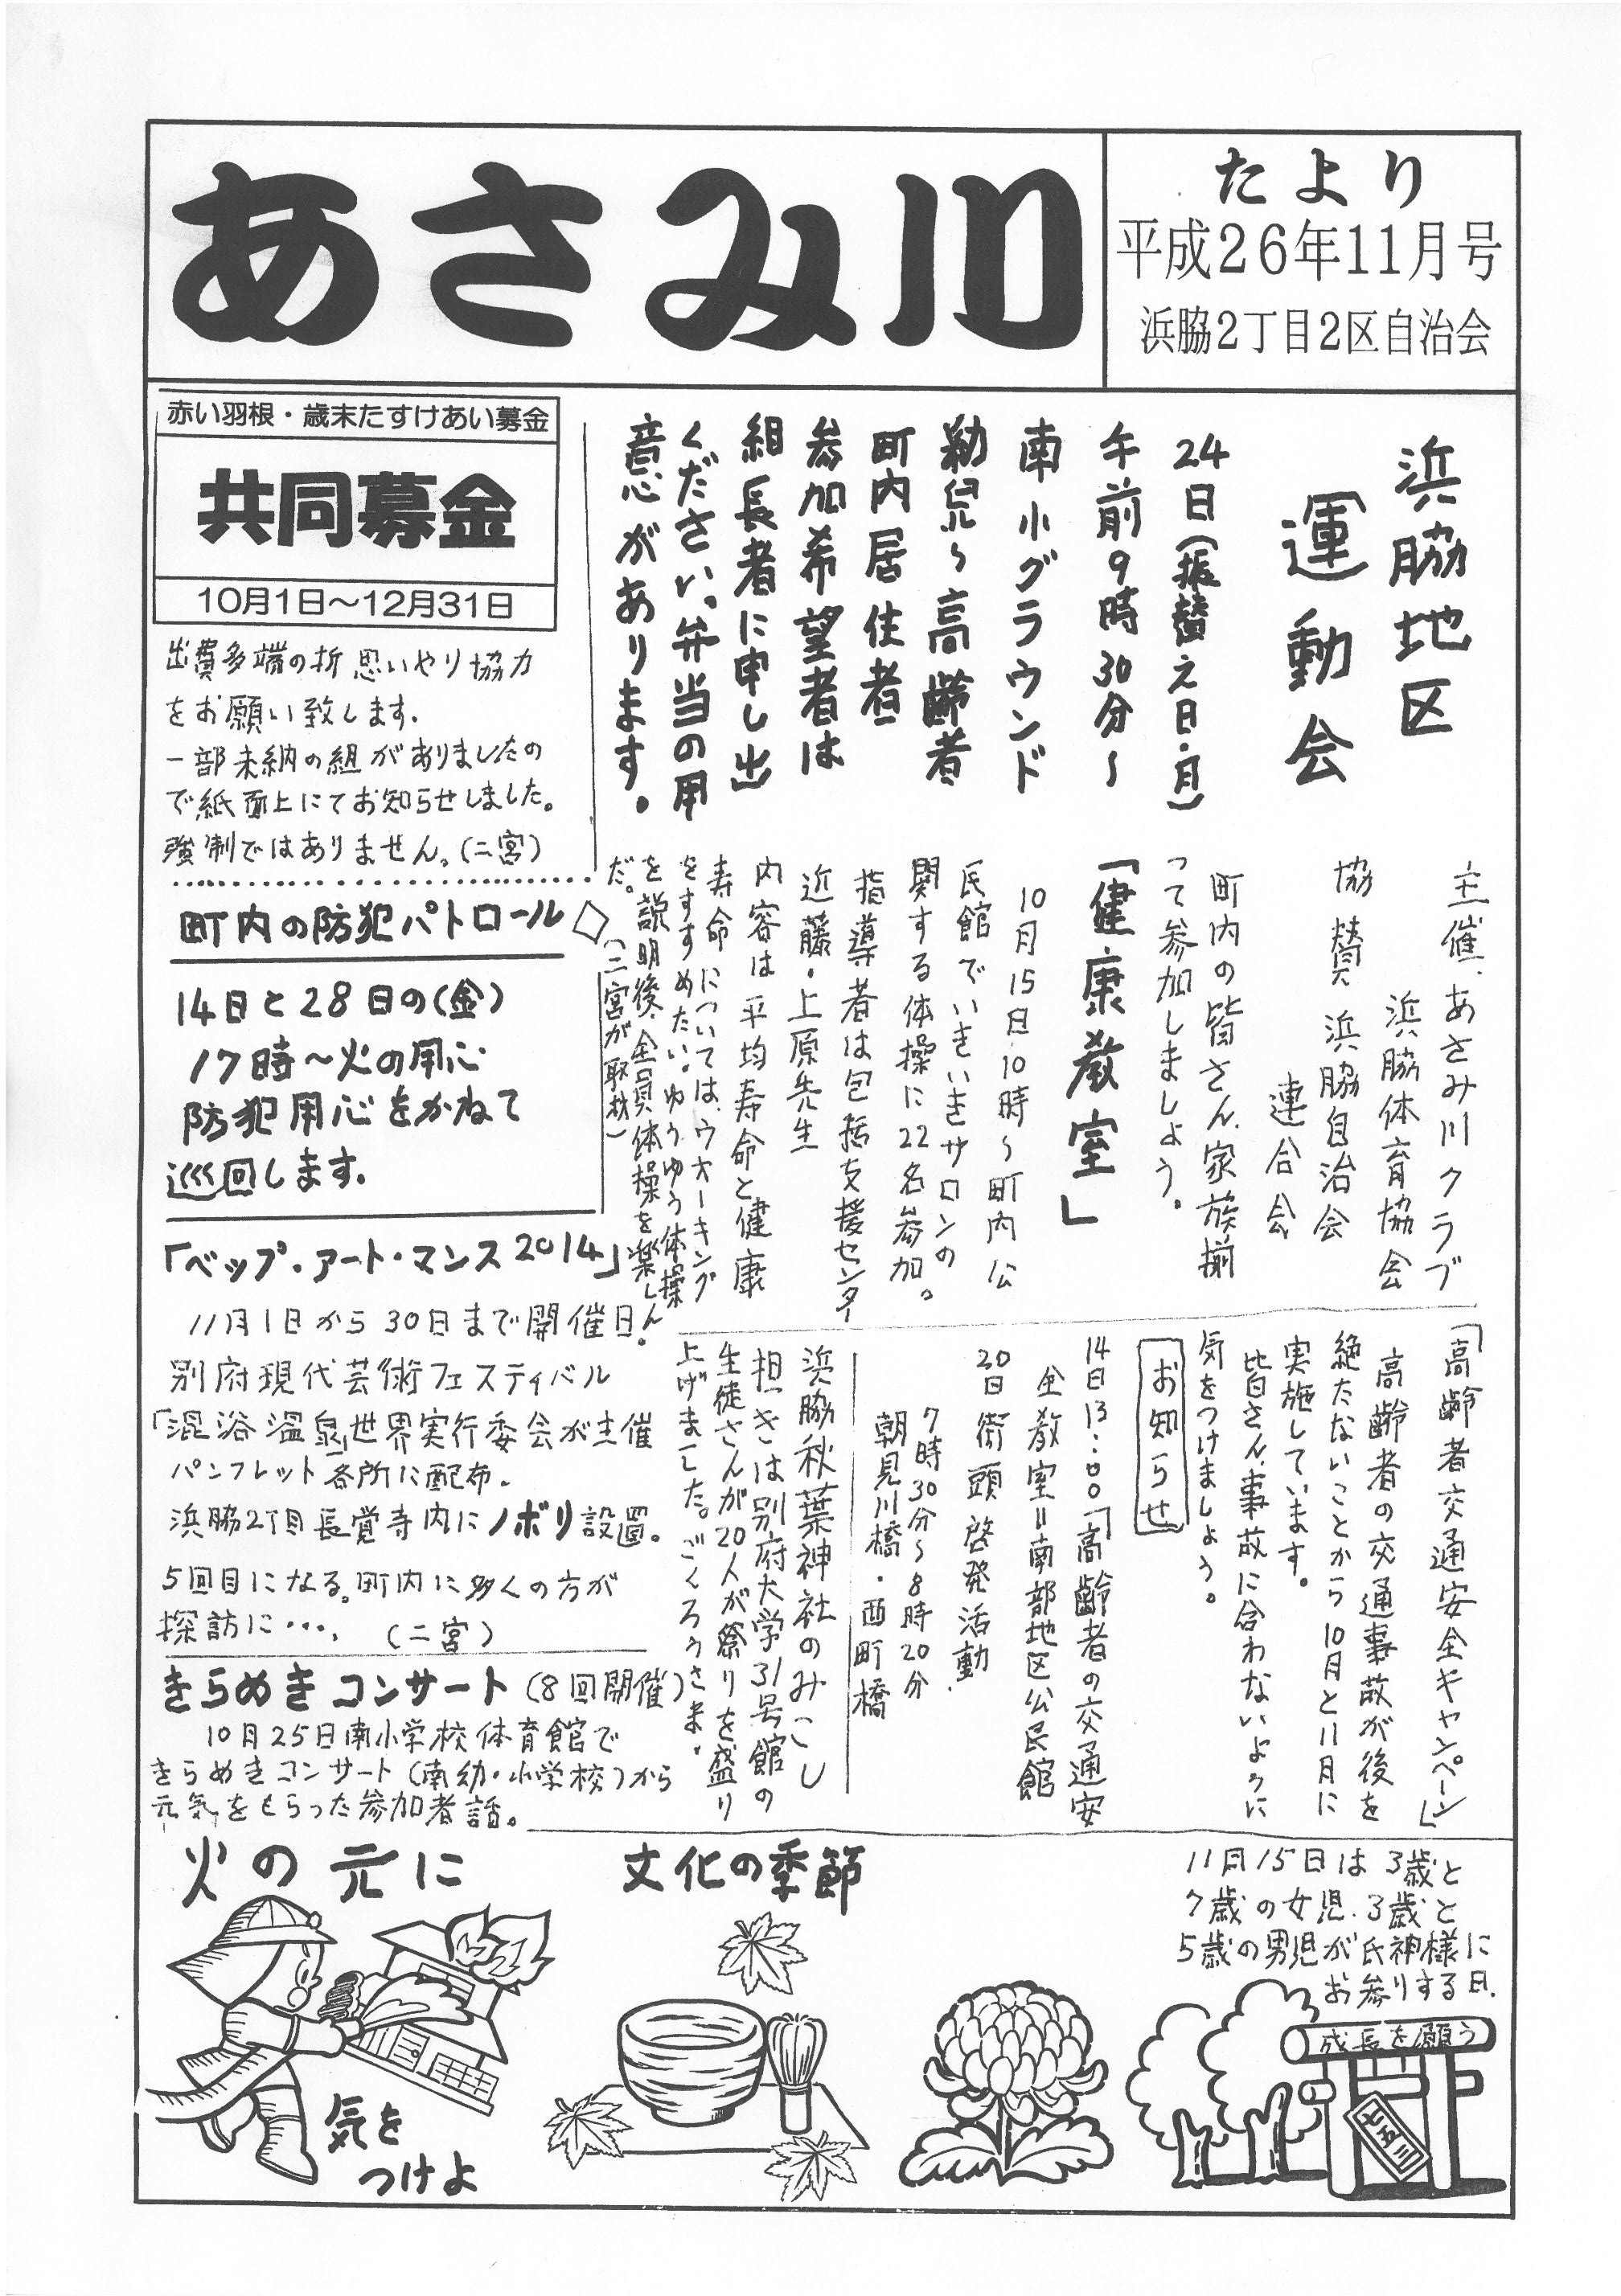 あさみ川
たより
平成26年11月号
浜脇2丁目2区自治会
浜脇地区
運動会
24日(振替え日・月)
午前9時30分～
南小グラウンド
幼児～高齢者
町内居住者
参加希望者は
組長者に申し出
ください。弁当の用
意があります。
主催、あさみ川クラブ
浜脇体育協会
協賛 浜脇自治会
連合会
町内の皆さん、家族揃
って参加しましょう。
「健康教室」
10月15日10時～町内公
民館でいきいきサロンの
関する体操に22名参加。
指導者は包括支援センター
近藤・上原先生
内容は平均寿命と健康
寿命については、ウオーキング
をすすめたい。ゆうゆう体操
を説明後、全員体操を楽しん
だ。(二宮が取材)
赤い羽根・歳末たすけあい募金
共同募金
10月1日～12月31日
出費多端の折 思いやり協力
をお願い致します.
一部未納の組がありましたの
で紙面上にてお知らせしました。
強制ではありません。(二宮)
町内の防犯パトロール
14日と28日の(金)
17時～火の用心
防犯用心をかねて
巡回します.
「ベップ・アート・マンス2014」
11月1日から30日まで開催日.
別府現代芸術フェスティバル
「混浴温泉」世界実行委会が主催
パンフレット各所に配布.
浜脇2丁目長覚寺内にノボリ設置。
5回目になる。町内に多くの方が
探訪に・・・, (二宮)
きらめきコンサート(8回開催)
10月25日南小学校体育館で
きらめきコンサート(南幼・小学校)から
元気をもらった参加者話。
「高齢者交通安全キャンペーン」
高齢者の交通事故が後を
絶たないことから10月と11月に
実施しています。
皆さん、事故に合わないように
気をつけましょう。
お知らせ
14日13:00「高齢者の交通安
全教室=南部地区公民館
20日街頭啓発活動.
7時30分～8時20分
朝見川橋・西町橋
浜脇秋葉神社のみこし
担ぎは別府大学31号館の
生徒さんが20人が祭りを盛り
上げました。ごくろうさま.
火の元に
気を
つけよ
文化の季節
11月15日は3歳と
7歳の女児、3歳と
5歳の男児が氏神様に
お参りする日.
成長を願う
七五三